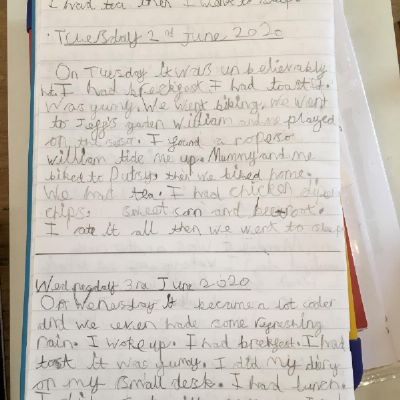 I had tea then I went to sleep.
· Tuesday 2nd June 2020
On Tuesday it was un believably
hot. I had breekfast I had toast it
was yumy. We went biking. we went
to Jeff's garden William and me played
on the . I found a rope so
william tide me up. Mummy and me
biked to Putny. then we biked home.
We had tea. I had chicken
chips. sweetcorn and beetroot.
I ate it all then we went to sleep
Wednesday 3rd June 2020
On Wenesday it became a lot coder
and we even hade some refreshing
rain. I woke up. I had brekfast. I had
tost it was yumy. I did my diary
on my small desk. I had lunch.